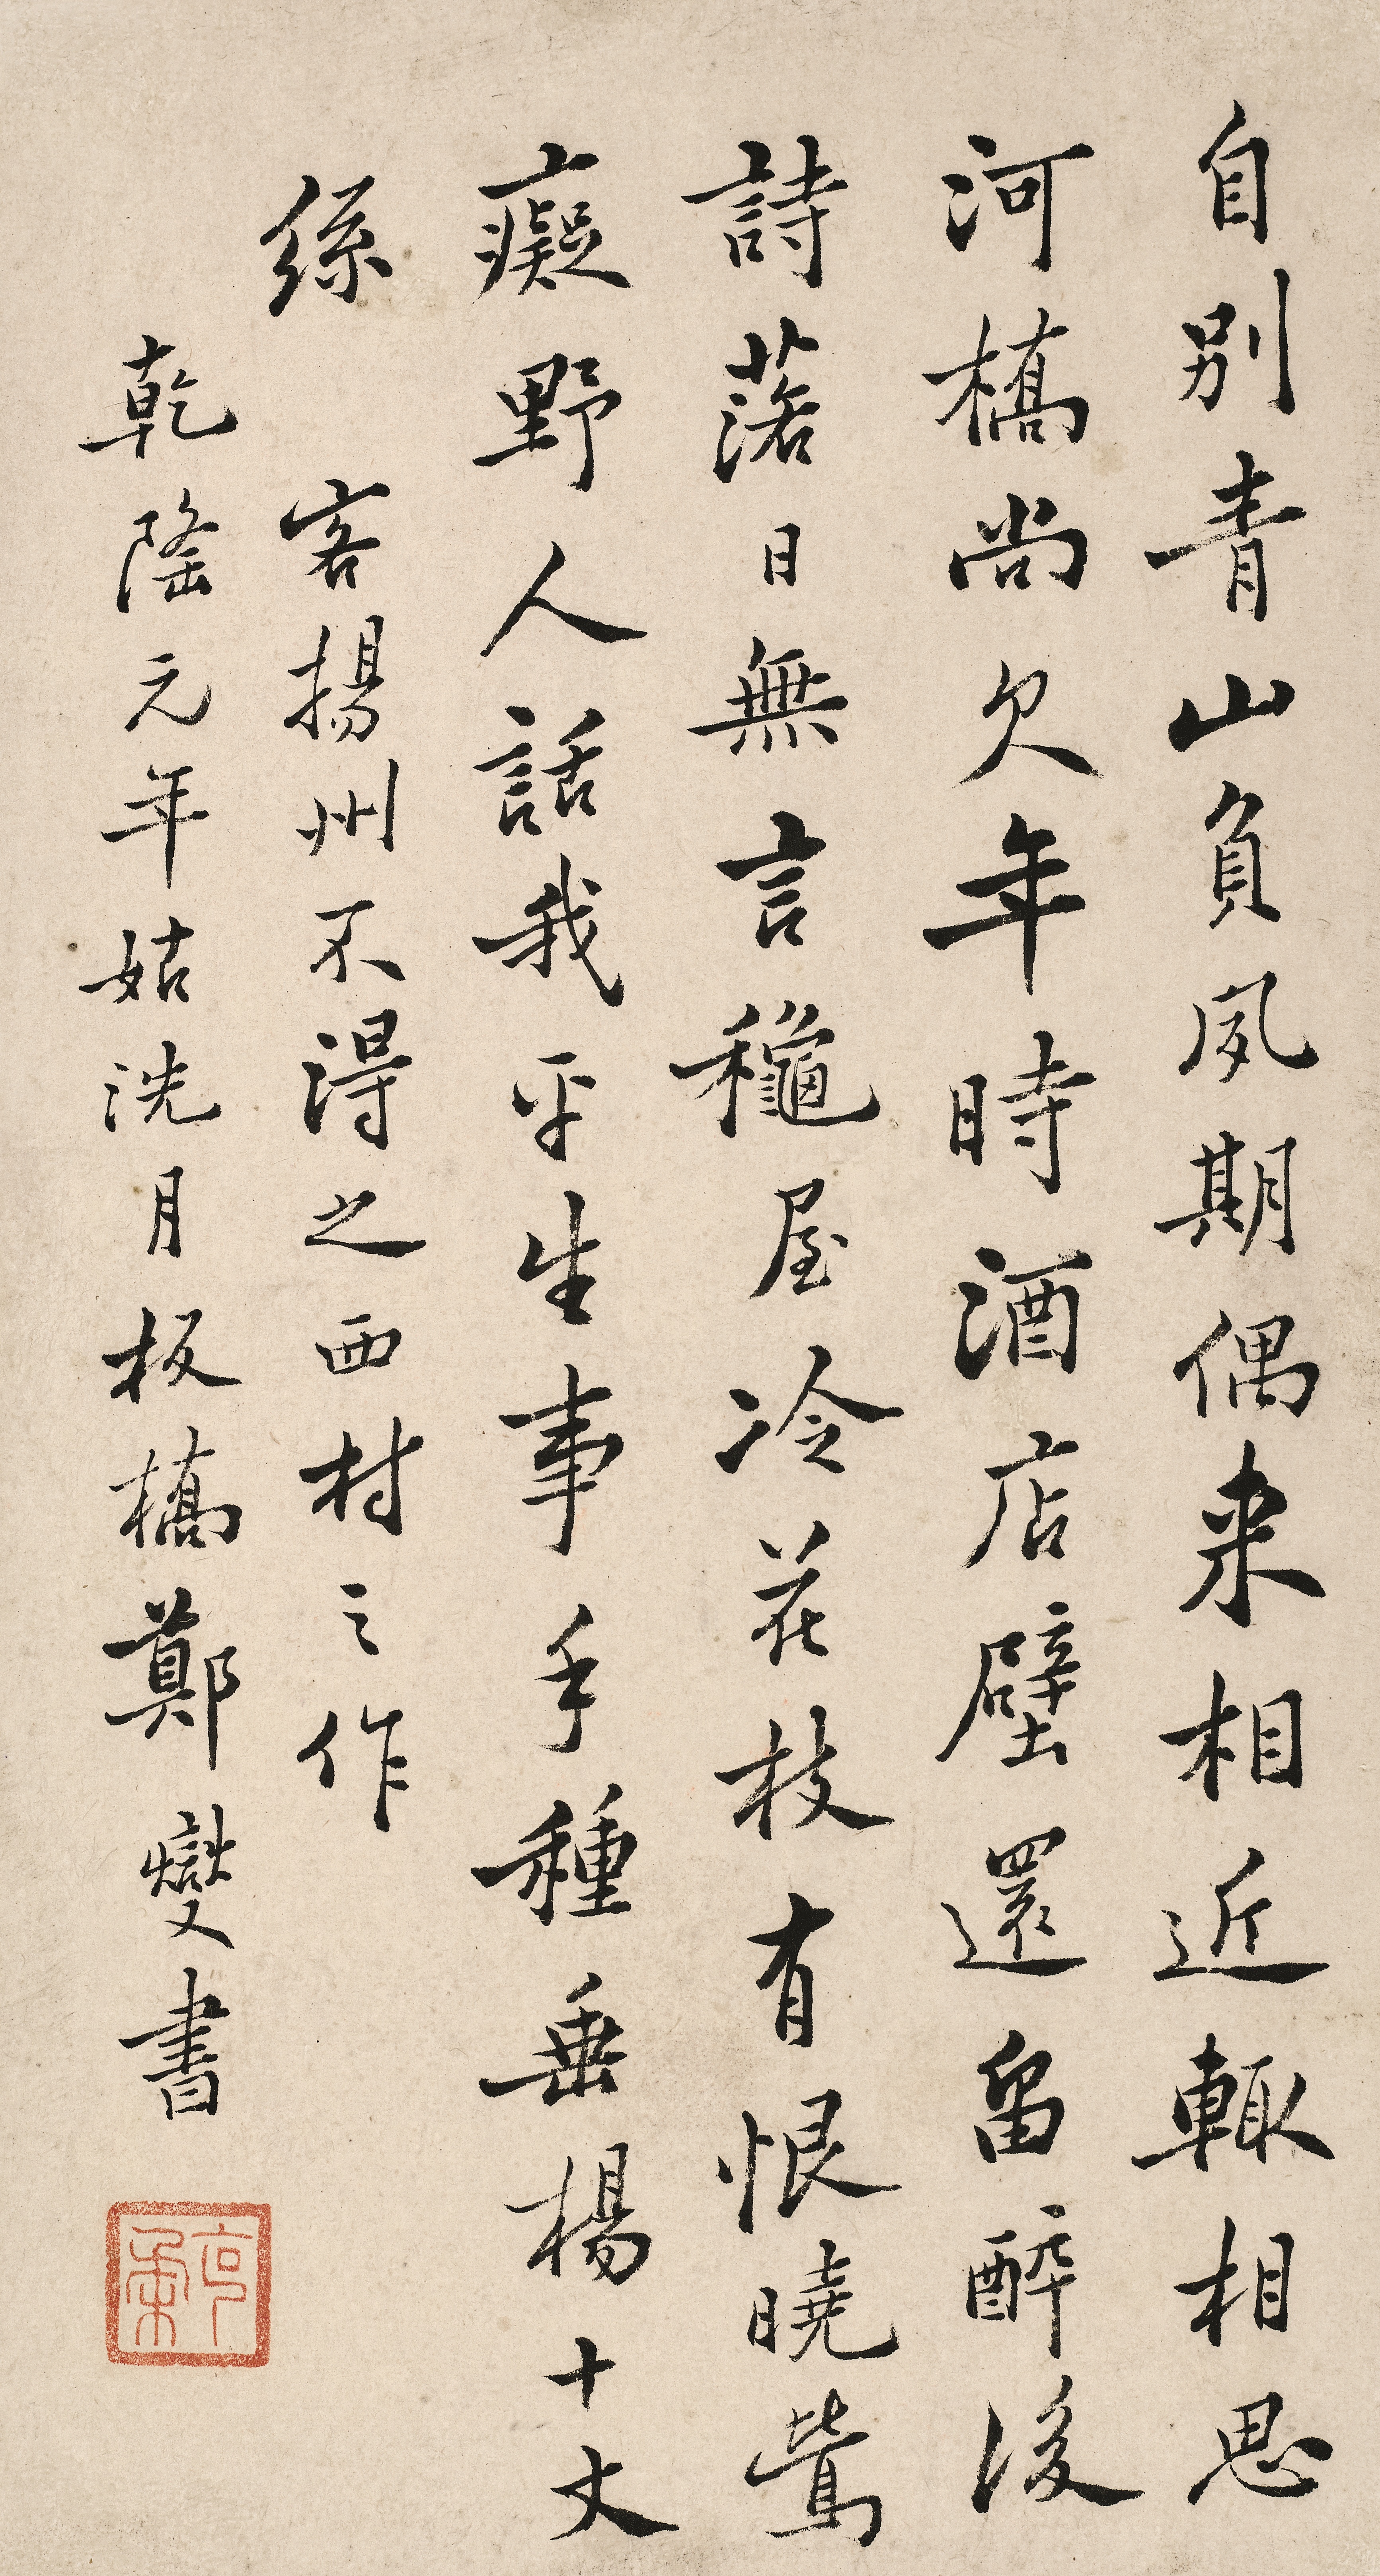 自別青山負夙期偶来相近輙相思
河橋尚欠年時酒店壁還留醉後
詩落日無言龝屋冷花枝有恨曉鶯
癡野人話我平生事手種垂楊十丈
絲
客揚州不得之西村之作
乾隆元年姑洗月板橋鄭燮書